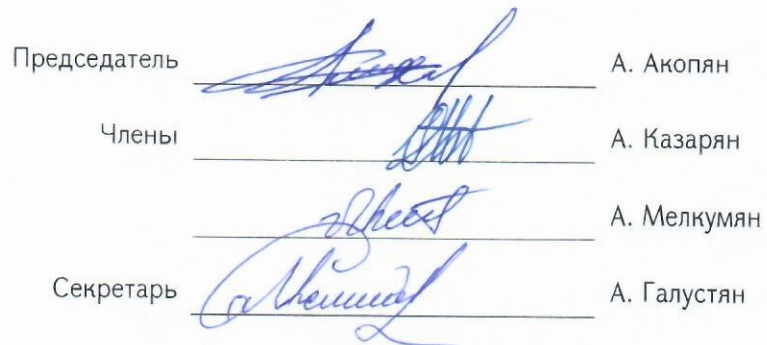 Председатель А. Акопян
Члены А. Казарян
А. Мелкумян
Секретарь А. Галустян